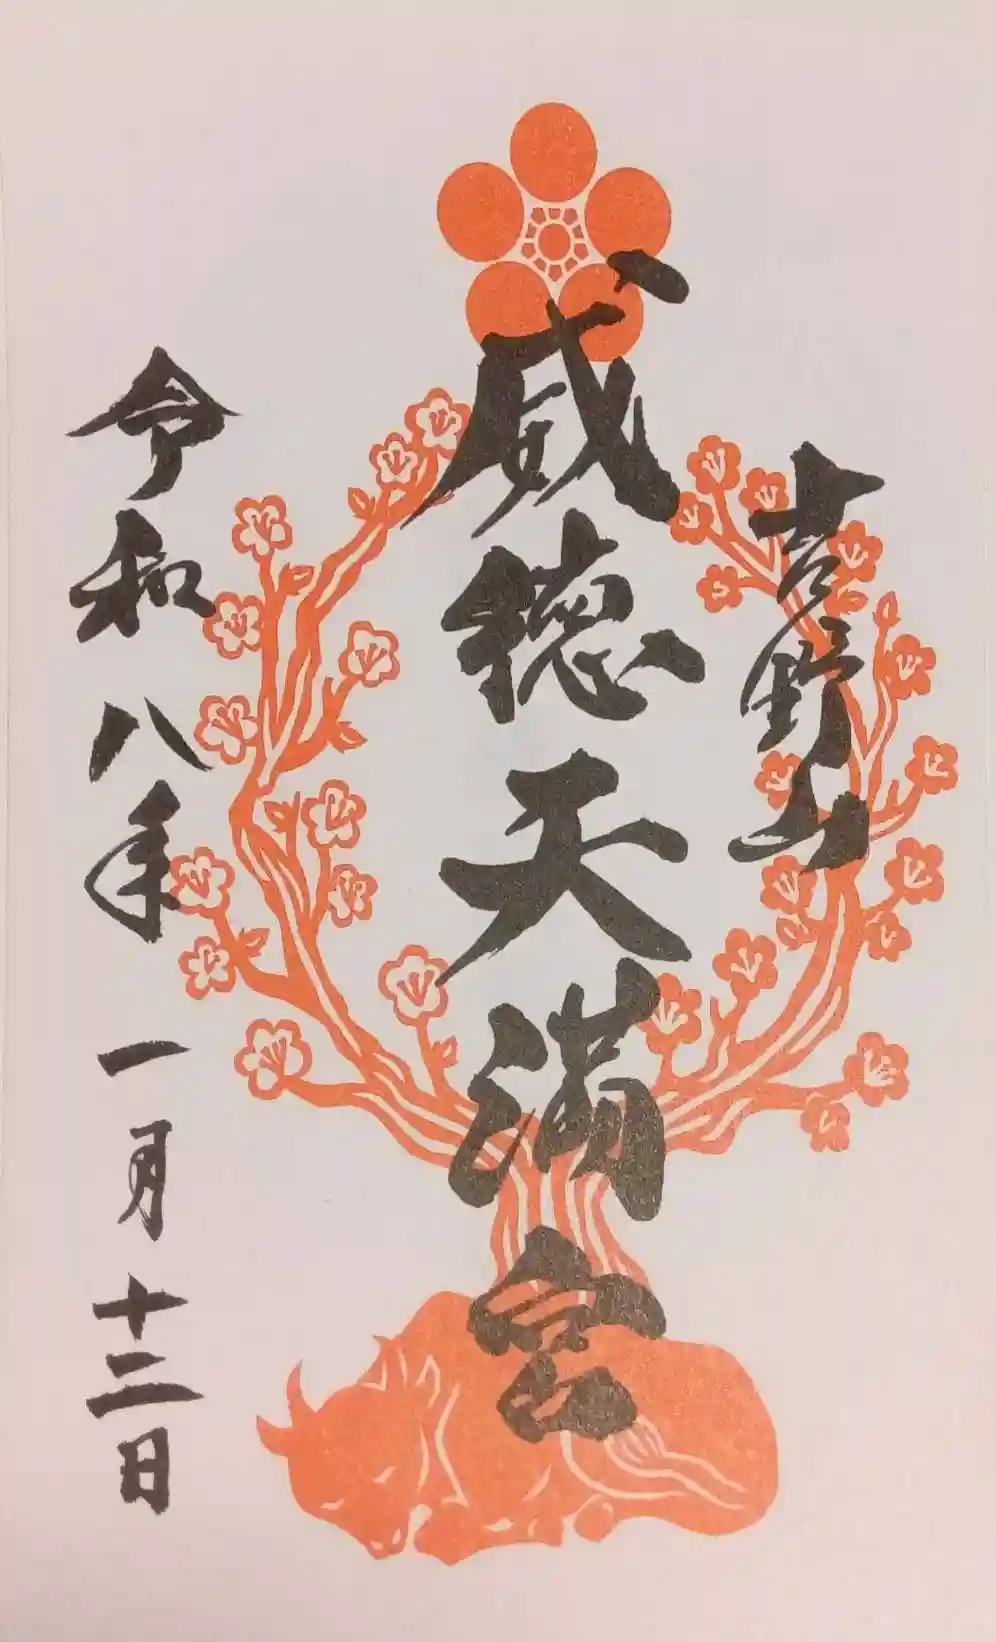 吉野山
威徳天満宮
令和八年一月十二日